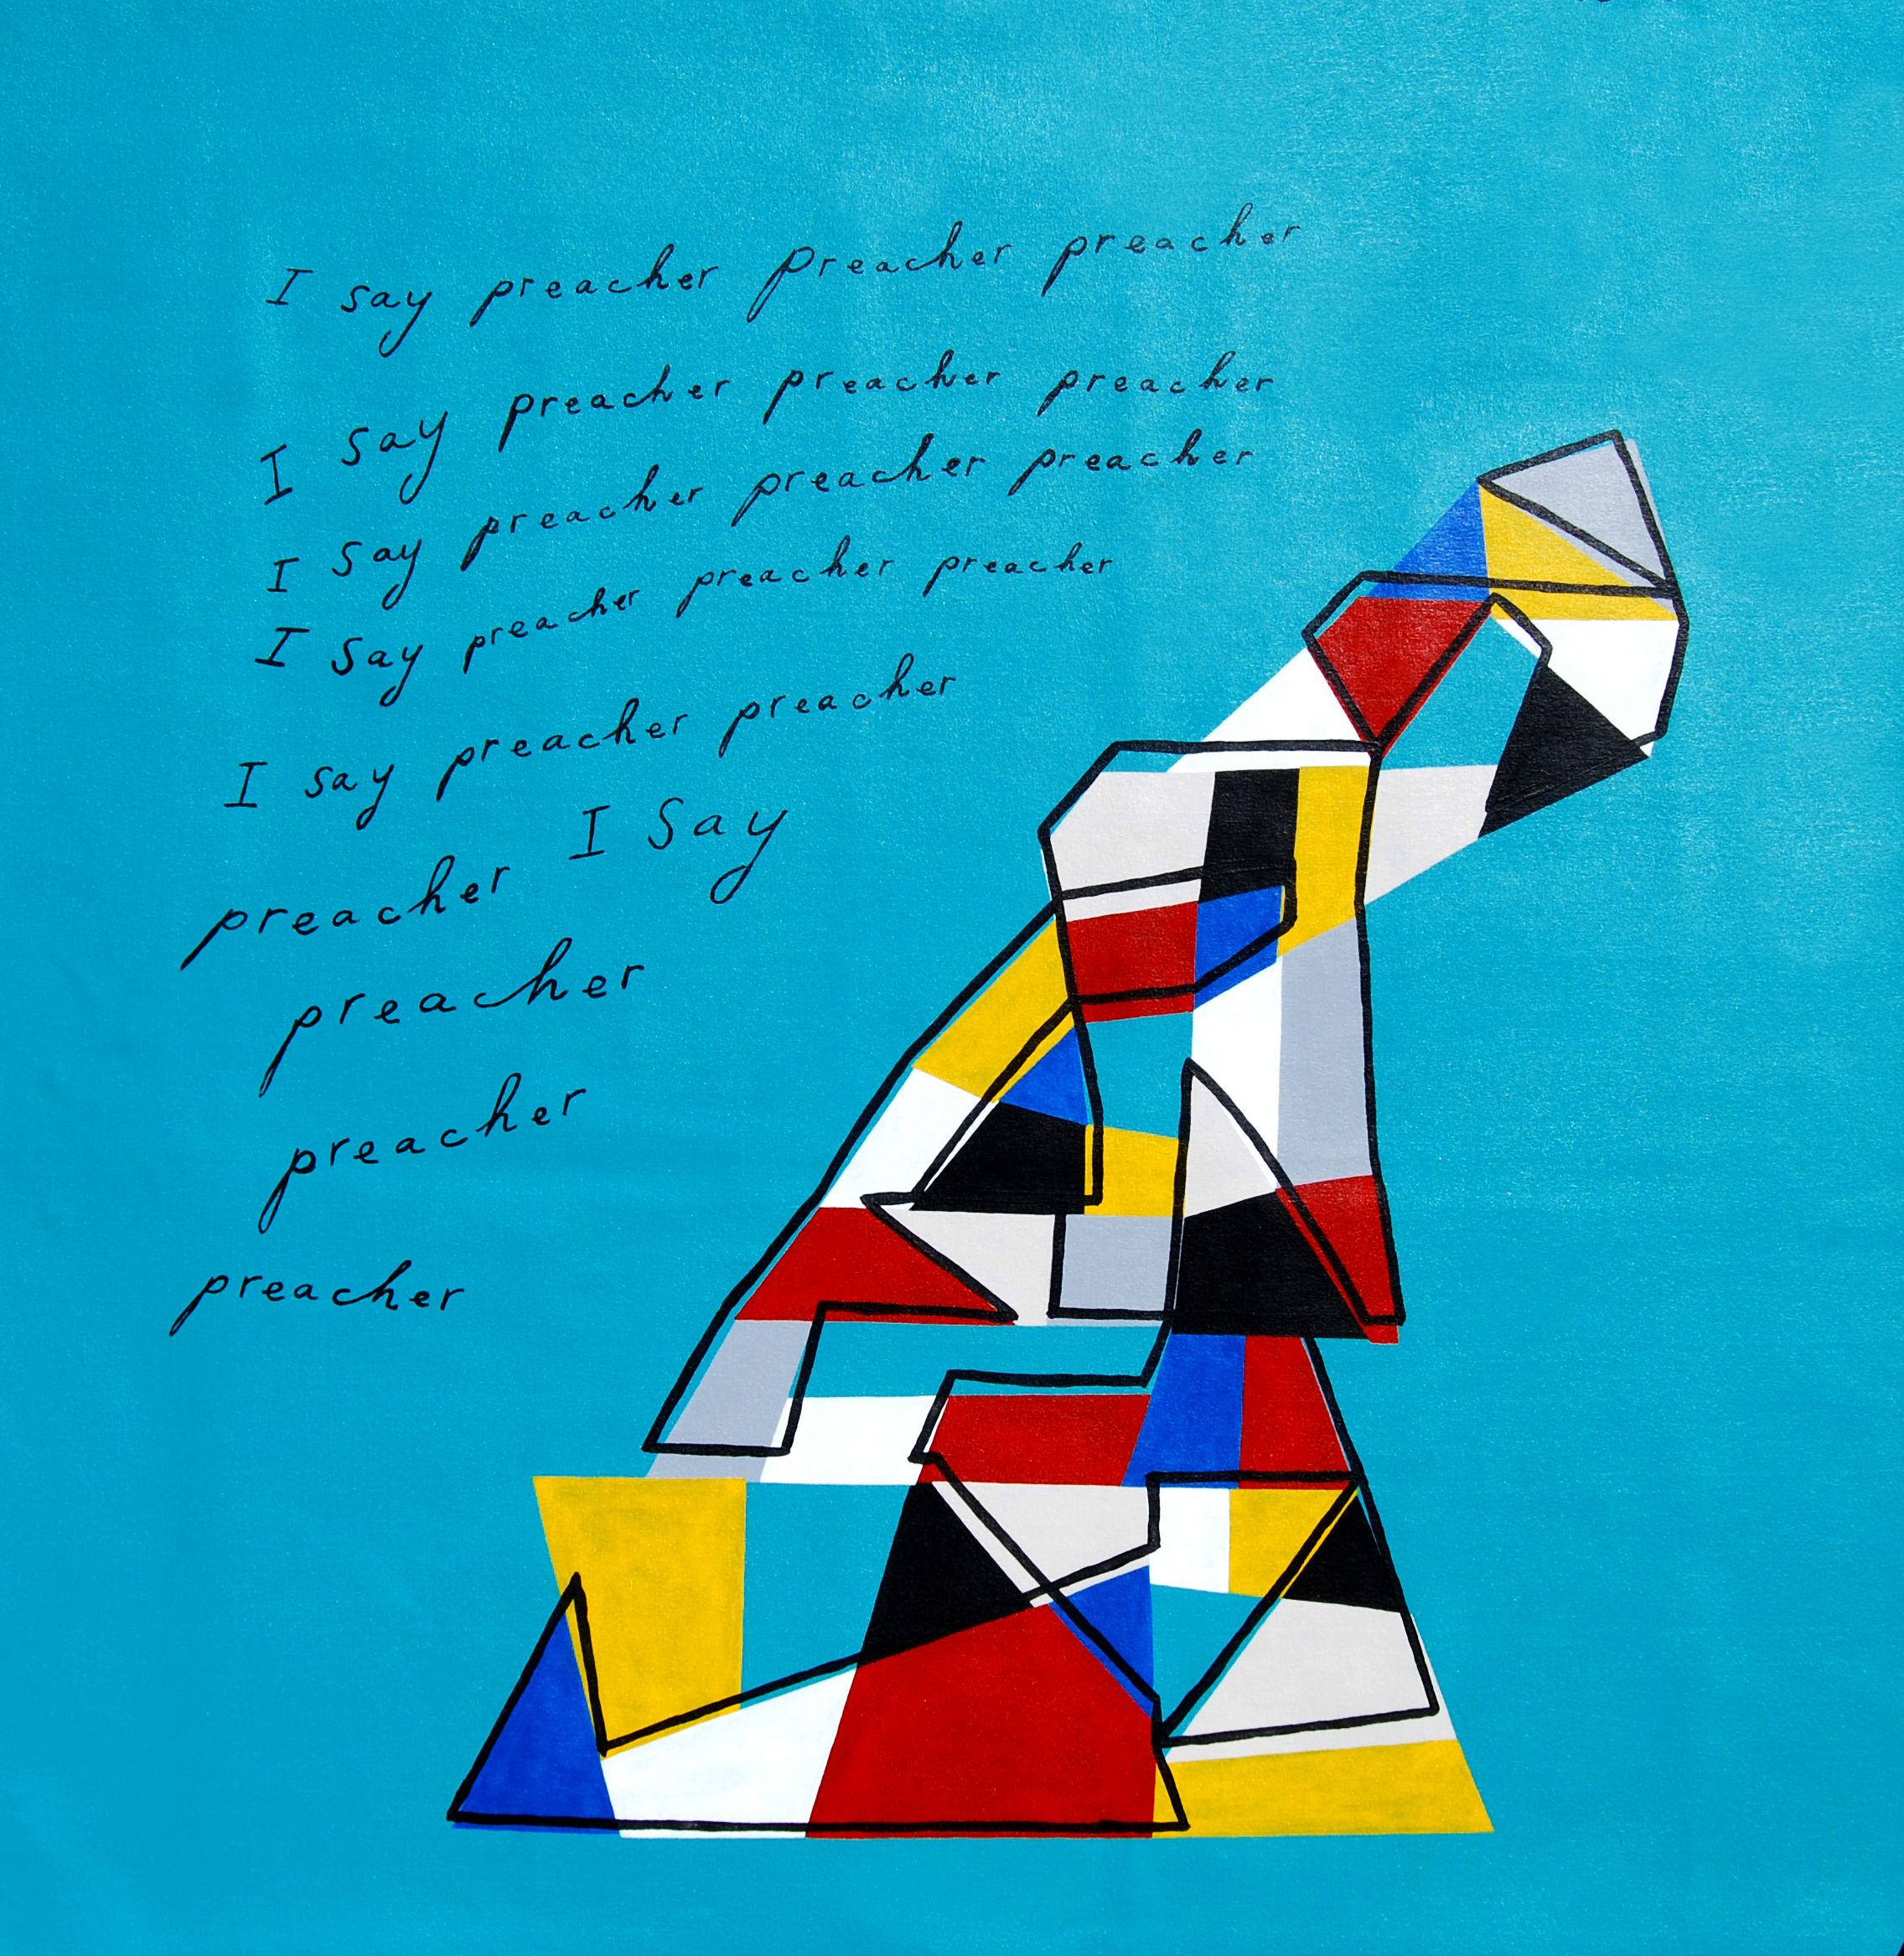 I say preacher preacher preacher
I say preacher preacher preacher
I say preacher preacher preacher
I say preacher preacher preacher
I say preacher preacher
preacher I Say
preacher
preacher
preacher